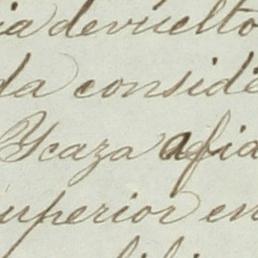 ia devuelto
da conside
Ycaza afia
uperior en